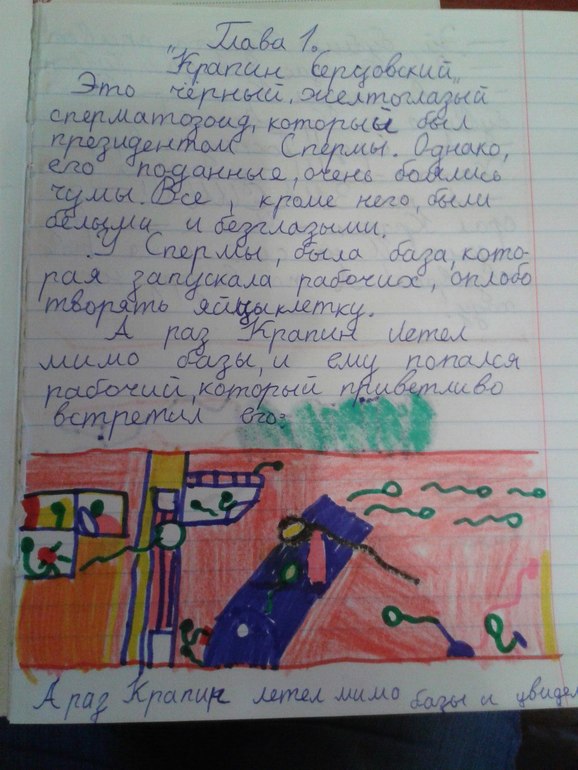 Глава 1.
"Крапин Серцовский"
Это чёрный, желтоглазый
сперматозоид, который был
президентом Спермы. Однако,
его поданные, очень боялись
чумы. Все, кроме него, были
белыми и безглазыми.
У Спермы, была база, кото-
рая запускала рабочих, оплодо
творять яйцыклетку.
А раз Крапин летел
мимо базы, и ему попался
рабочий, который приветливо
встретил его:
А раз Крапин летел мимо базы и увидел